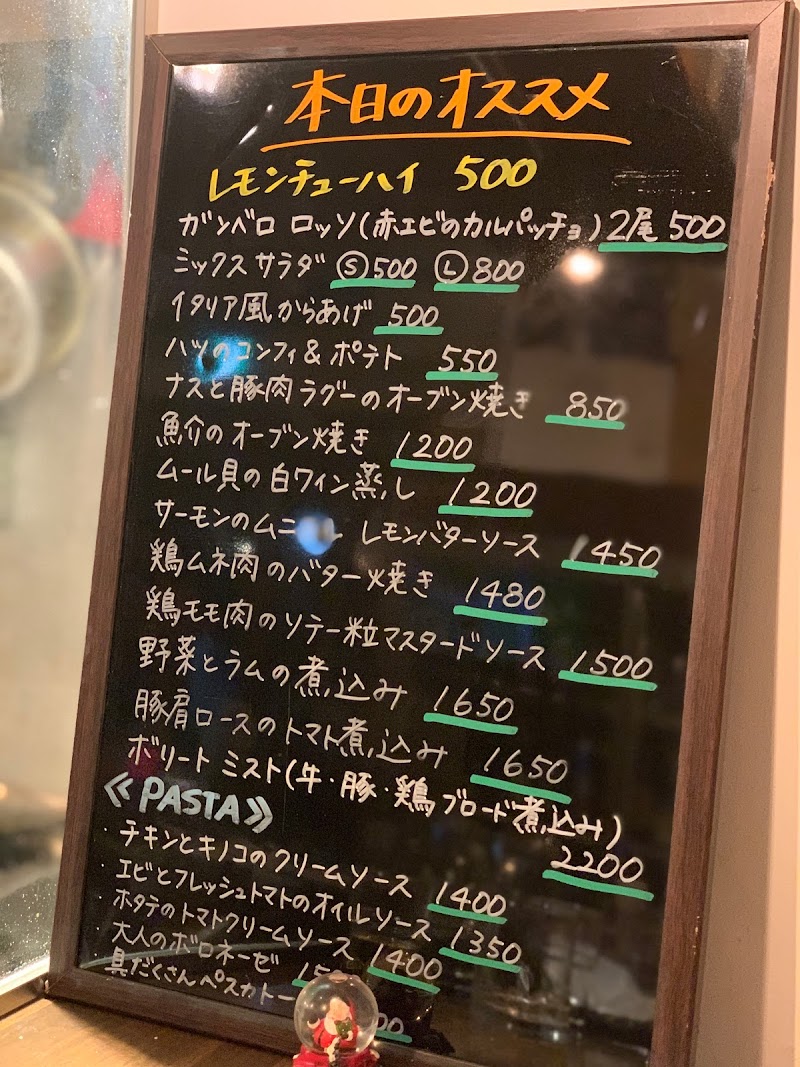 本日のオススメ
レモンチューハイ 500
ガンベロ ロッソ(赤エビのカルパッチョ)2尾 500
ミックスサラダ Ⓢ500 Ⓛ800
イタリア風からあげ 500
ハツのコンフィ&ポテト 550
ナスと豚肉ラグーのオーブン焼き 850
魚介のオーブン焼き 1200
ムール貝の白ワイン蒸し 1200
サーモンのムニ レモンバターソース 1450
鶏ムネ肉のバター焼き 1480
鶏モモ肉のソテー粒マスタードソース 1500
野菜とラムの煮込み 1650
豚肩ロースのトマト煮込み 1650
ボリート ミスト(牛・豚・鶏ブロード煮込み)
2200
《PASTA》
・チキンとキノコのクリームソース 1400
・エビとフレッシュトマトのオイルソース 1350
・ホタテのトマトクリームソース 1400
・大人のボロネーゼ
・具だくさんペスカトー